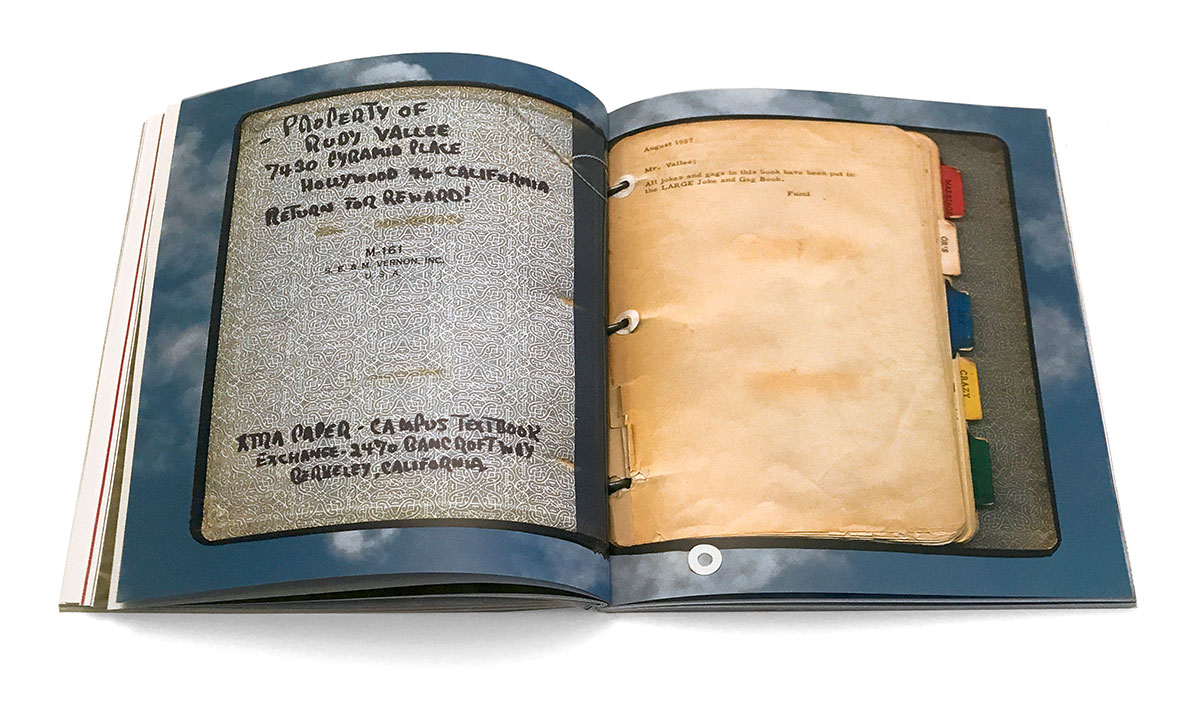 - PROPERTY OF
RUDY VALLEE
7430 PYRAMID PLACE
HOLLYWOOD 46-CALIFORNIA
RETURN FOR REWARD!
M-161
S. E. & M. VERNON, INC.
U. S. A.
XTRA PAPER - CAMPUS TEXTBOOK
EXCHANGE-2470 BANCROFT WAY
BERKELEY, CALIFORNIA
August 1957
Mr. Vallee:
All jokes and gags in this book have been put in
the LARGE Joke and Gag Book.
CRAZY